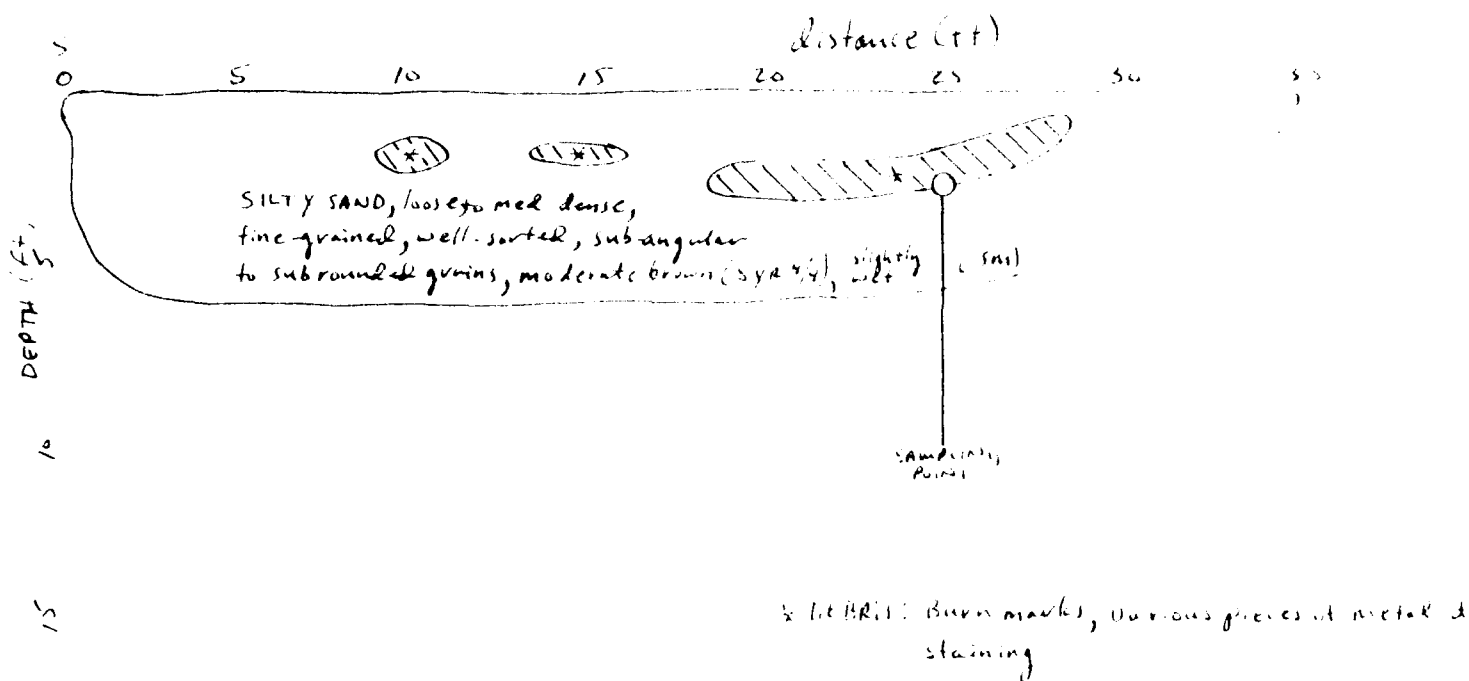 distance (ft)
0 5 10 15 20 25 30
SILTY SAND, loose to med dense,
fine-grained, well-sorted, sub-angular
to subrounded grains, moderate brown (5YR 4/4), slightly wet (SM)
DEPTH (ft.
5
10
SAMPLING
POINT
15
* DEBRIS: Burn marks, various pieces of metal &
staining